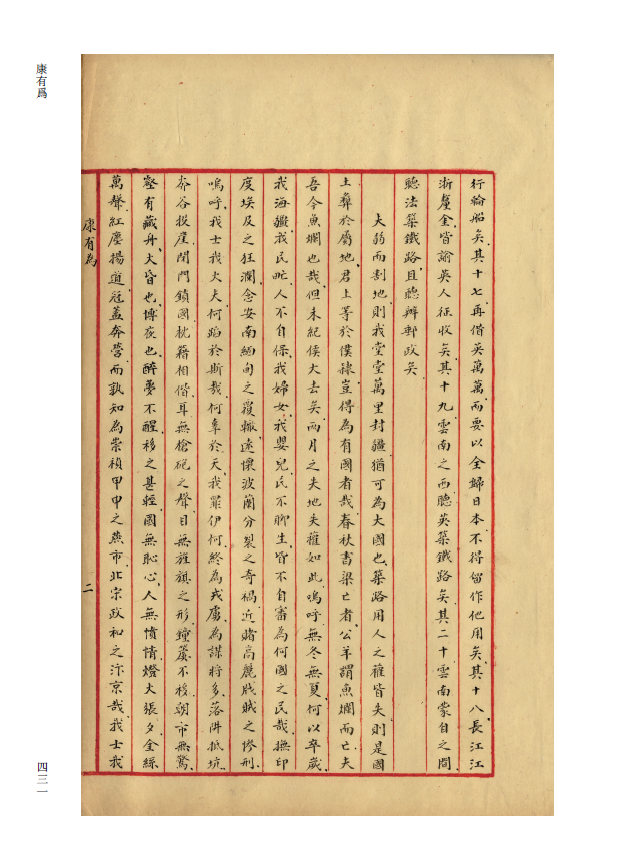 康有爲
行輪船矣其十七再借英萬萬而要以全歸日本不得留作他用矣其十八長江江
浙釐金皆諭英人征收矣其十九雲南之西聽英築鐵路矣其二十雲南蒙自之間
聽法築鐵路且聽辦郵政矣
夫弱而割地則我堂堂萬里封疆猶可為大國也築路用人之權皆失則是國
土彝於屬地君上等於僕隸豈得為有國者哉春秋書梁亡者公羊謂魚爛而亡夫
吾今魚爛也哉但未紀侯大去矣兩月之失地失權如此嗚呼無冬無夏何以卒歲
我海疆我民甿人不自保我婦女我嬰兒民不聊生皆不自審為何國之民哉撫印
度埃及之狂瀾念安南緬甸之覆轍遠懷波蘭分裂之奇禍近睹高麗戕賊之慘刑
嗚呼我士我大夫何蹈於斯哉何辜於天我罪伊何終為戎虜為謀將多落阱抵坑
奔谷投崖閉門鎖國枕籍相偕耳無槍砲之聲目無旌旗之形鐘簴不移朝市無驚
壑有藏舟大昏也博夜也醉夢不醒移之甚輕國無恥心人無憤情燈火張夕金絲
萬聲紅塵揚道冠蓋奔營而孰知為崇禎甲申之燕市北宗政和之汴京哉我士我
康有為
二
四三一